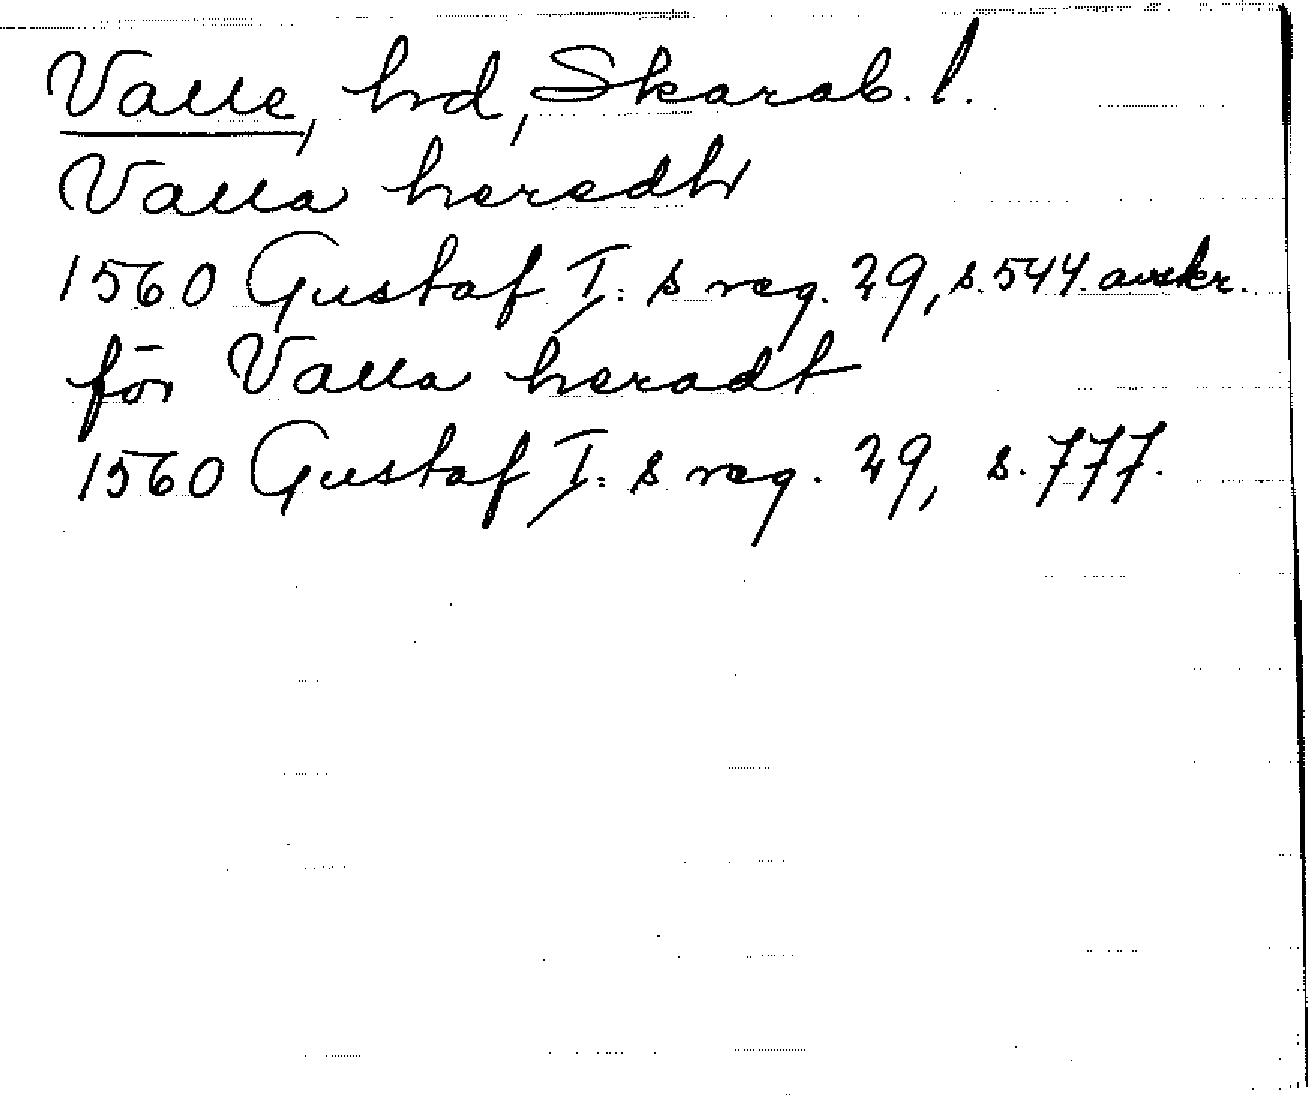 Valle, hd, Skarab. l.
Valla heredh
1560 Gustaf I: s reg. 29, s. 544. avskr.
för Valla heradt
1560 Gustaf I: s reg. 29, s. 777.